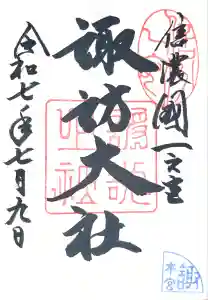 信濃國一之宮
諏訪大社
令和七年七月九日
諏訪
本宮